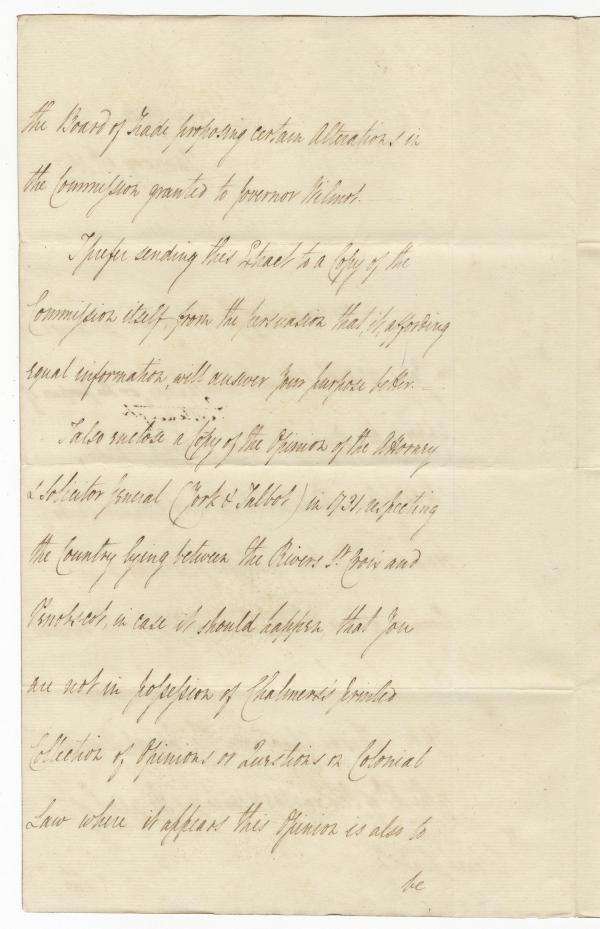 the Board of Trade proposing certain Alterations in
the Commission granted to Governor Wilmot.
I prefer sending this Extract to a Copy of the
Commission itself, from the persuasion that, it, affording
equal information, will answer your purpose better.
I also enclose a Copy of the Opinion of the Attorney
& Solicitor General (York & Talbot) in 1731, respecting
the Country lying between the Rivers St Croix and
Penobscot, in case it should happen that you
are not in possession of Chalmers's printed
Collection of Opinions or Questions on Colonial
Law where it appears this Opinion is also to
be